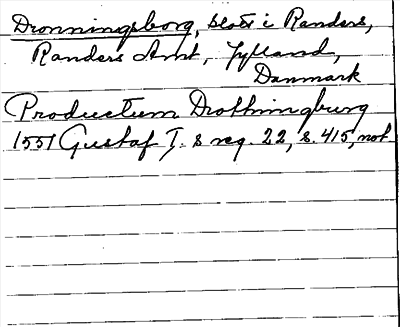 Dronningsborg, slott i Randers,
Randers Amt, Jylland,
Danmark
Productum Drothningburg
1551 Gustaf I. s reg. 22, s. 415, not